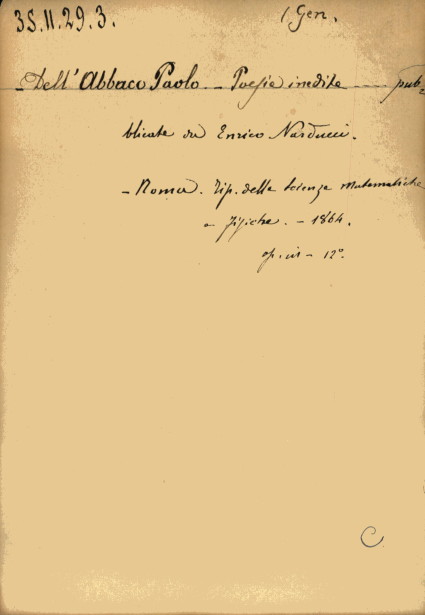 35.11.29.3.
1 Gen.
Dell'Abbaco Paolo - Poesie inedite --- pub=
blicate da Enrico Narducci.
- Roma. Tip. delle Scienze Matematiche
e Fisiche. - 1864.
op. in - 12º.
C